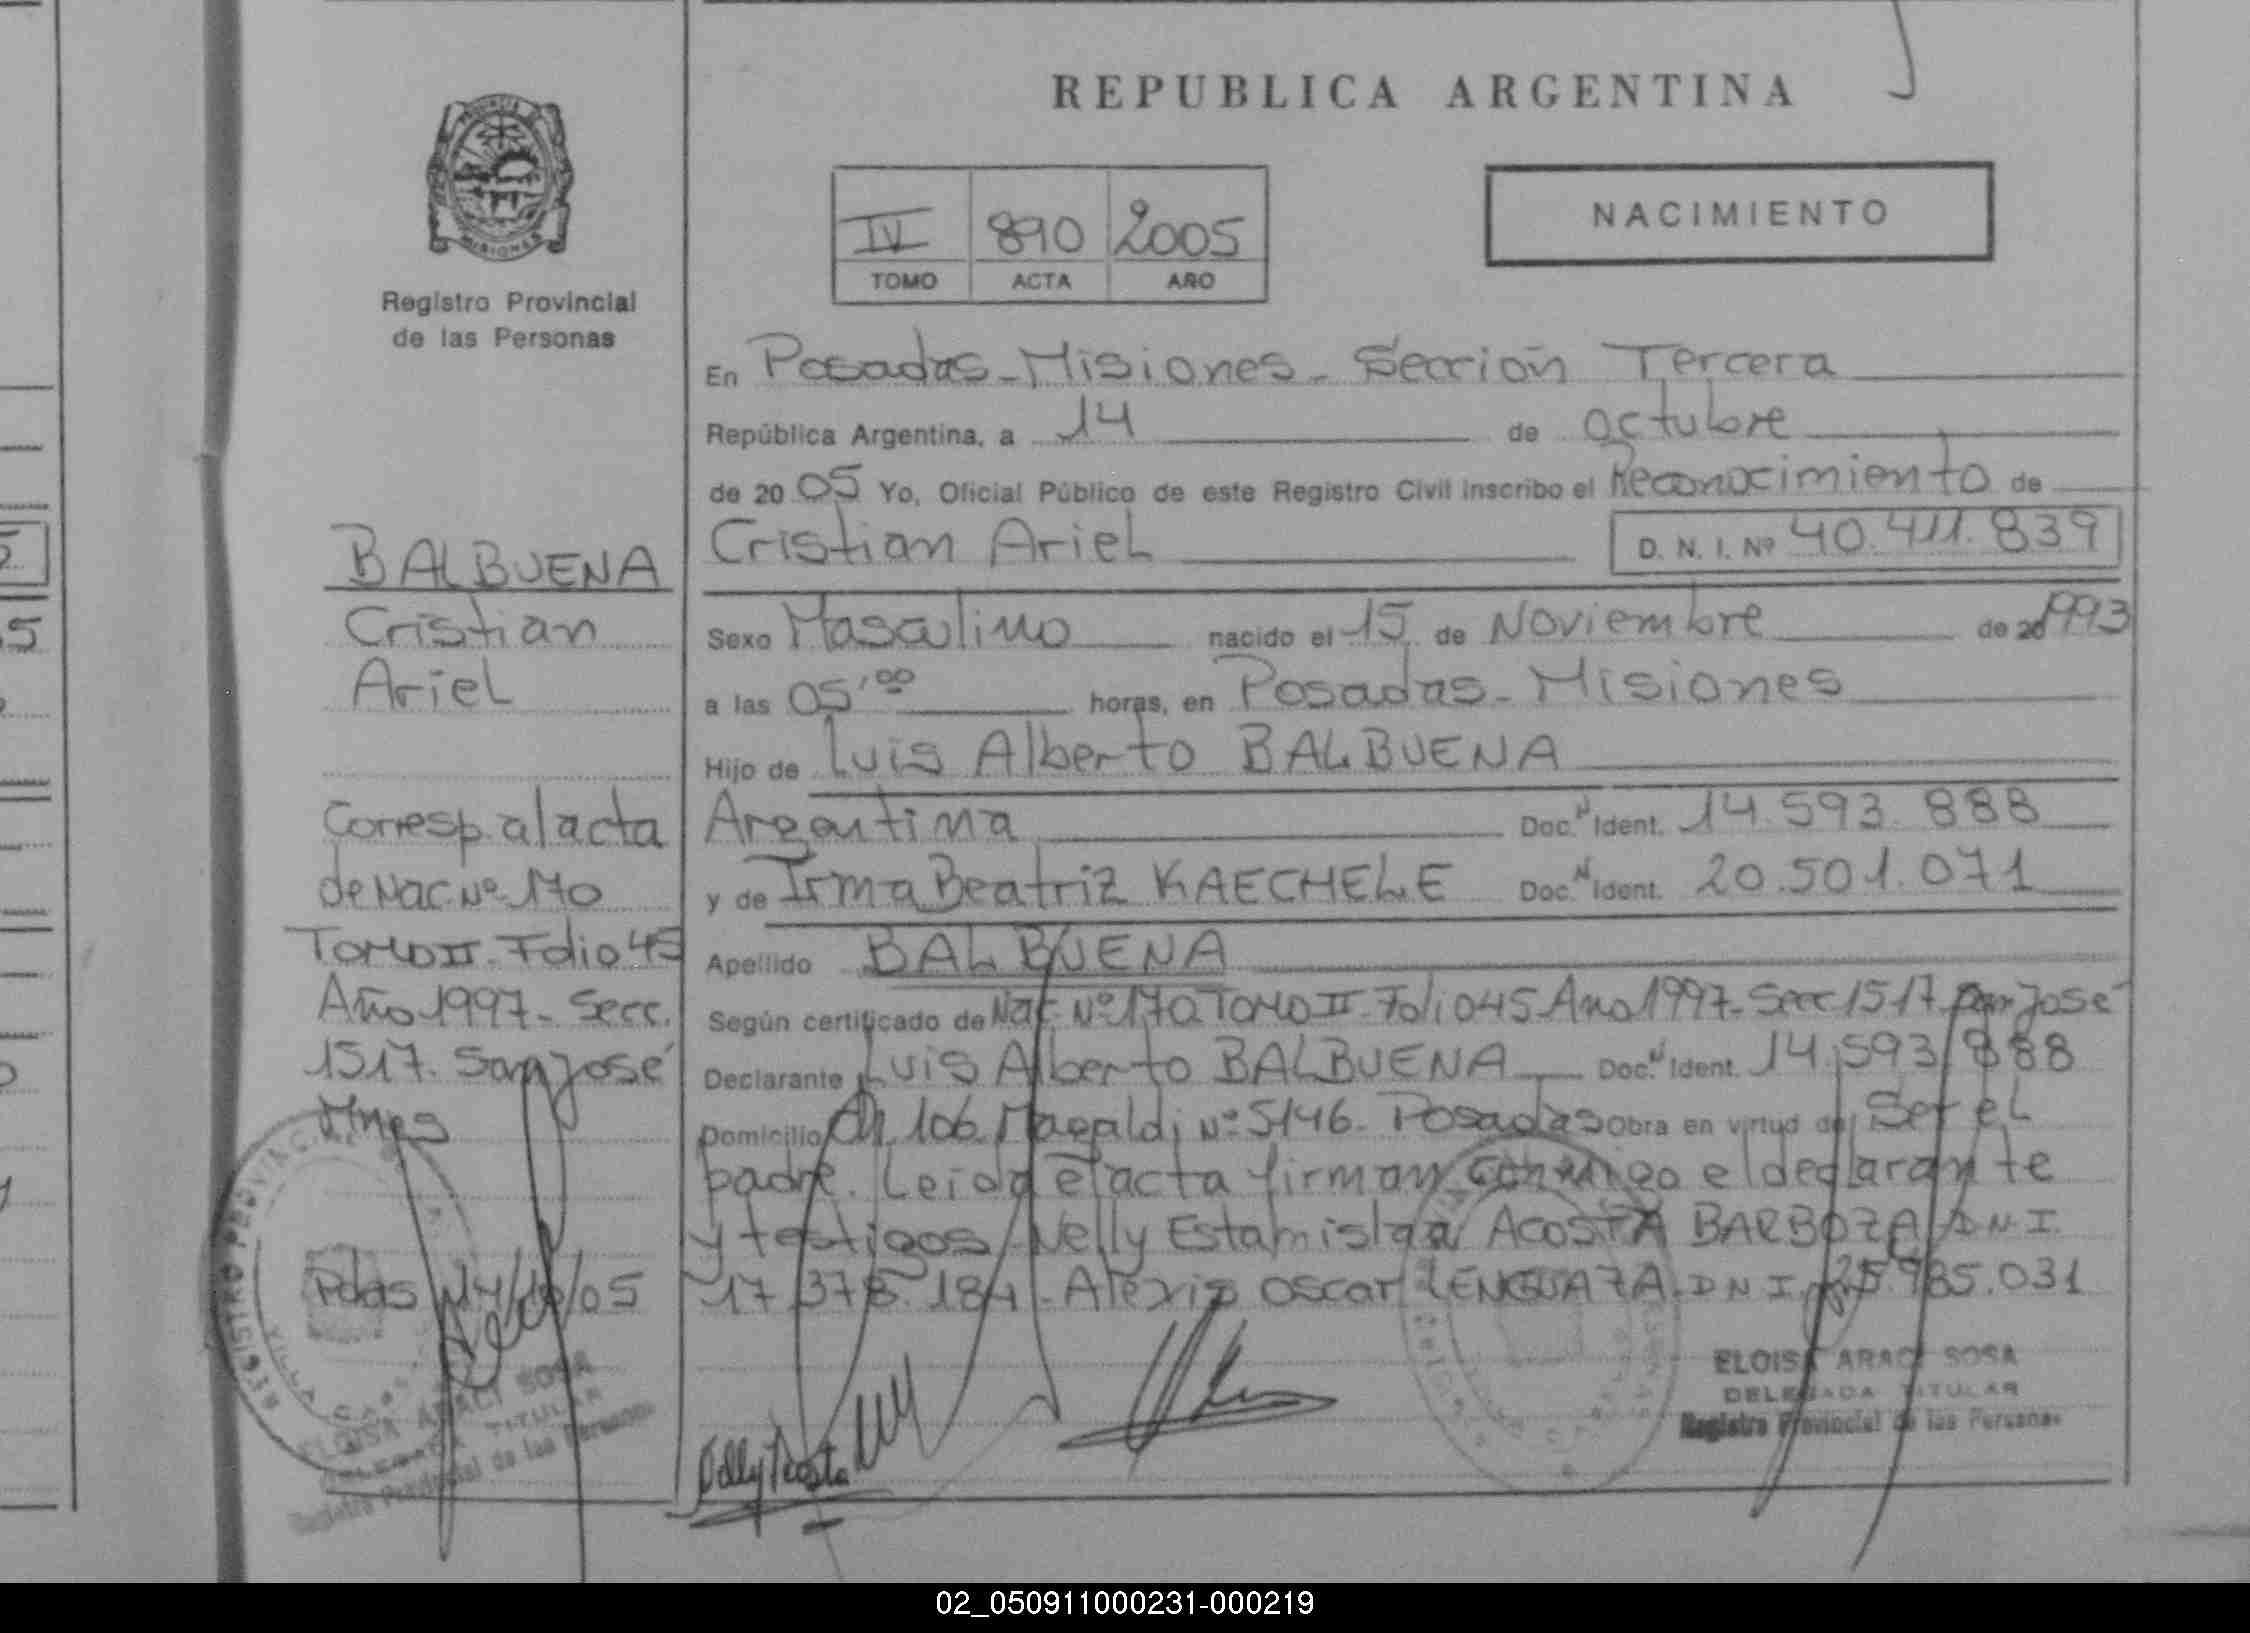 REPUBLICA ARGENTINA
NACIMIENTO
IV 890 2005
TOMO ACTA AÑO
Registro Provincial
de las Personas
BALBUENA
Cristian
Ariel
Corresp. al acta
de Nac. Nº 170
Tomo II. Folio 45
Año 1997 - Secc.
1517. San José
Mnes
Pdas 14/10/05
ELOISA ARACI SOSA
DELEGADA TITULAR
Registro Provincial de las Personas
En Posadas - Misiones - Sección Tercera
República Argentina, a 14 de octubre
de 20 05 Yo, Oficial Público de este Registro Civil inscribo el Reconocimiento de
Cristian Ariel D. N. I. Nº 40.411.839
Sexo Masculino nacido el 15 de Noviembre de 1993
a las 05,00 horas, en Posadas - Misiones
Hijo de Luis Alberto BALBUENA
Argentina Doc. N Ident. 14.593.888
y de Irma Beatriz KAECHELE Doc. N Ident. 20.501.071
Apellido BALBUENA
Según certificado de Nac. Nº 170 Tomo II - Folio 45 Año 1997 - Secc 1517 San José
Declarante Luis Alberto BALBUENA Doc. N Ident. 14.593.888
Domicilio Ch 106 Magaldi Nº 5146 - Posadas Obra en virtud de Ser el
padre. Leida el acta firman conmigo el declarante
y testigos Nelly Estamislaa ACOSTA BARBOZA D.N.I.
17.378.184 - Alexis Oscar LENGUAZA D N I. 25.985.031
Nelly Acosta
ELOISA ARACI SOSA
DELEGADA TITULAR
Registro Provincial de las Personas
02_050911000231-000219